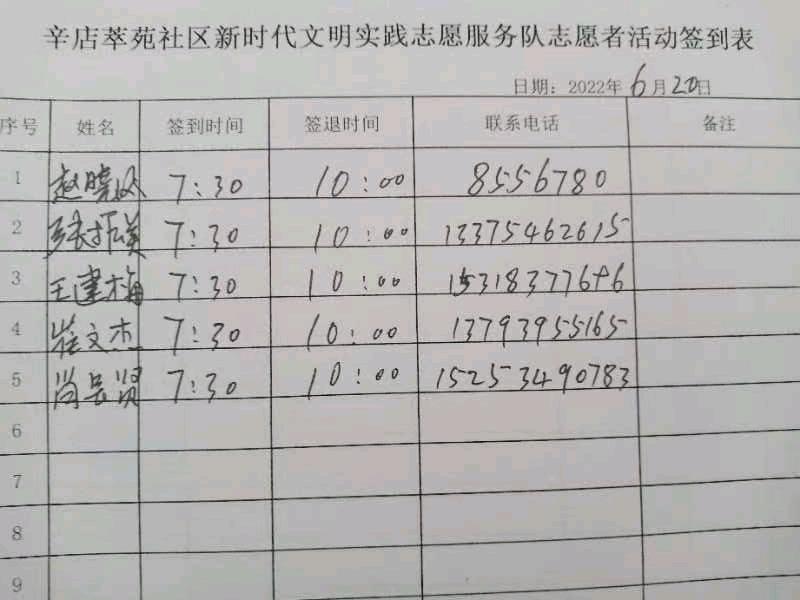 辛店萃苑社区新时代文明实践志愿服务队志愿者活动签到表
日期：2022年 6月20日
序号 姓名 签到时间 签退时间 联系电话 备注
1 赵晓 7:30 10:00 8556780
2 张振美 7:30 10:00 13375462615
3 王建梅 7:30 10:00 15318377646
4 崔文杰 7:30 10:00 13793955165
5 尚长贤 7:30 10:00 15253490783
6
7
8
9